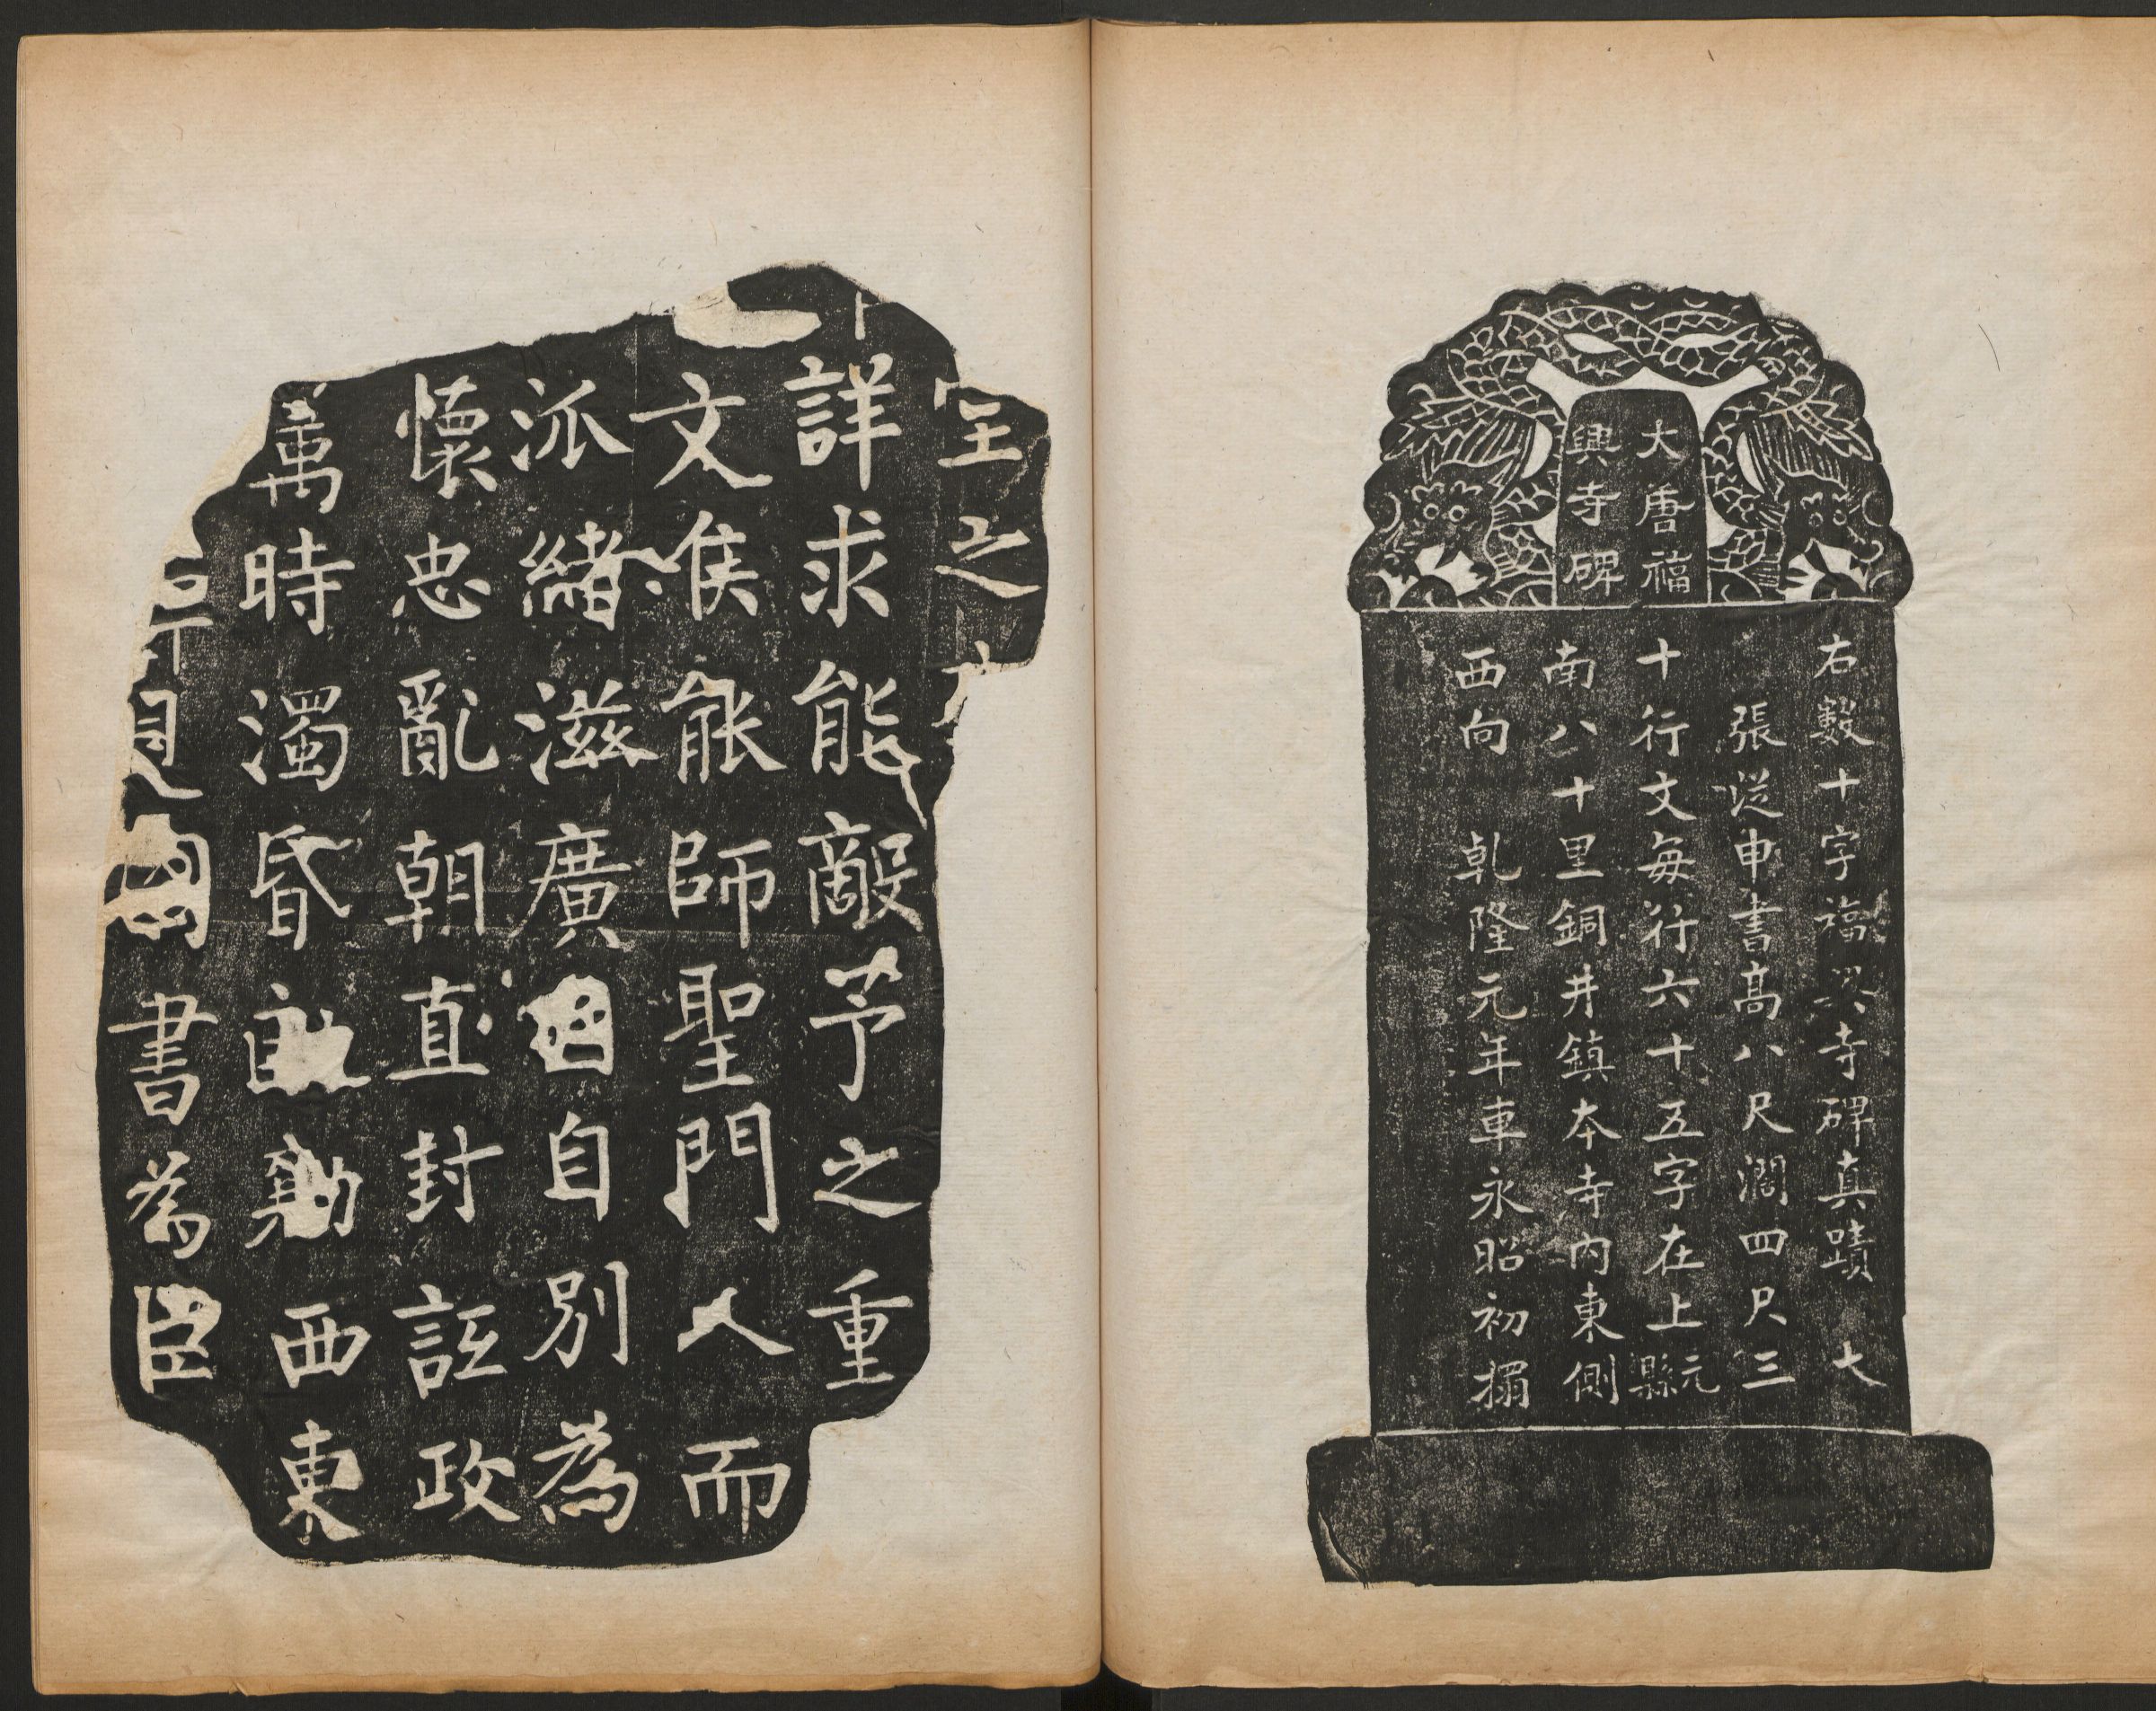 大唐福
興寺碑
右數十字福興寺碑真蹟大
張從申書高八尺濶四尺三
十行文每行六十五字在上元縣
南八十里銅井鎮本寺內東側
西向乾隆元年車永昭初搨
室之
詳求能敵茅之重
文侯能師聖門人而
派緒滋廣因自別為
懷忠亂朝直封詃政
萬時濁昏勳西東
書為臣